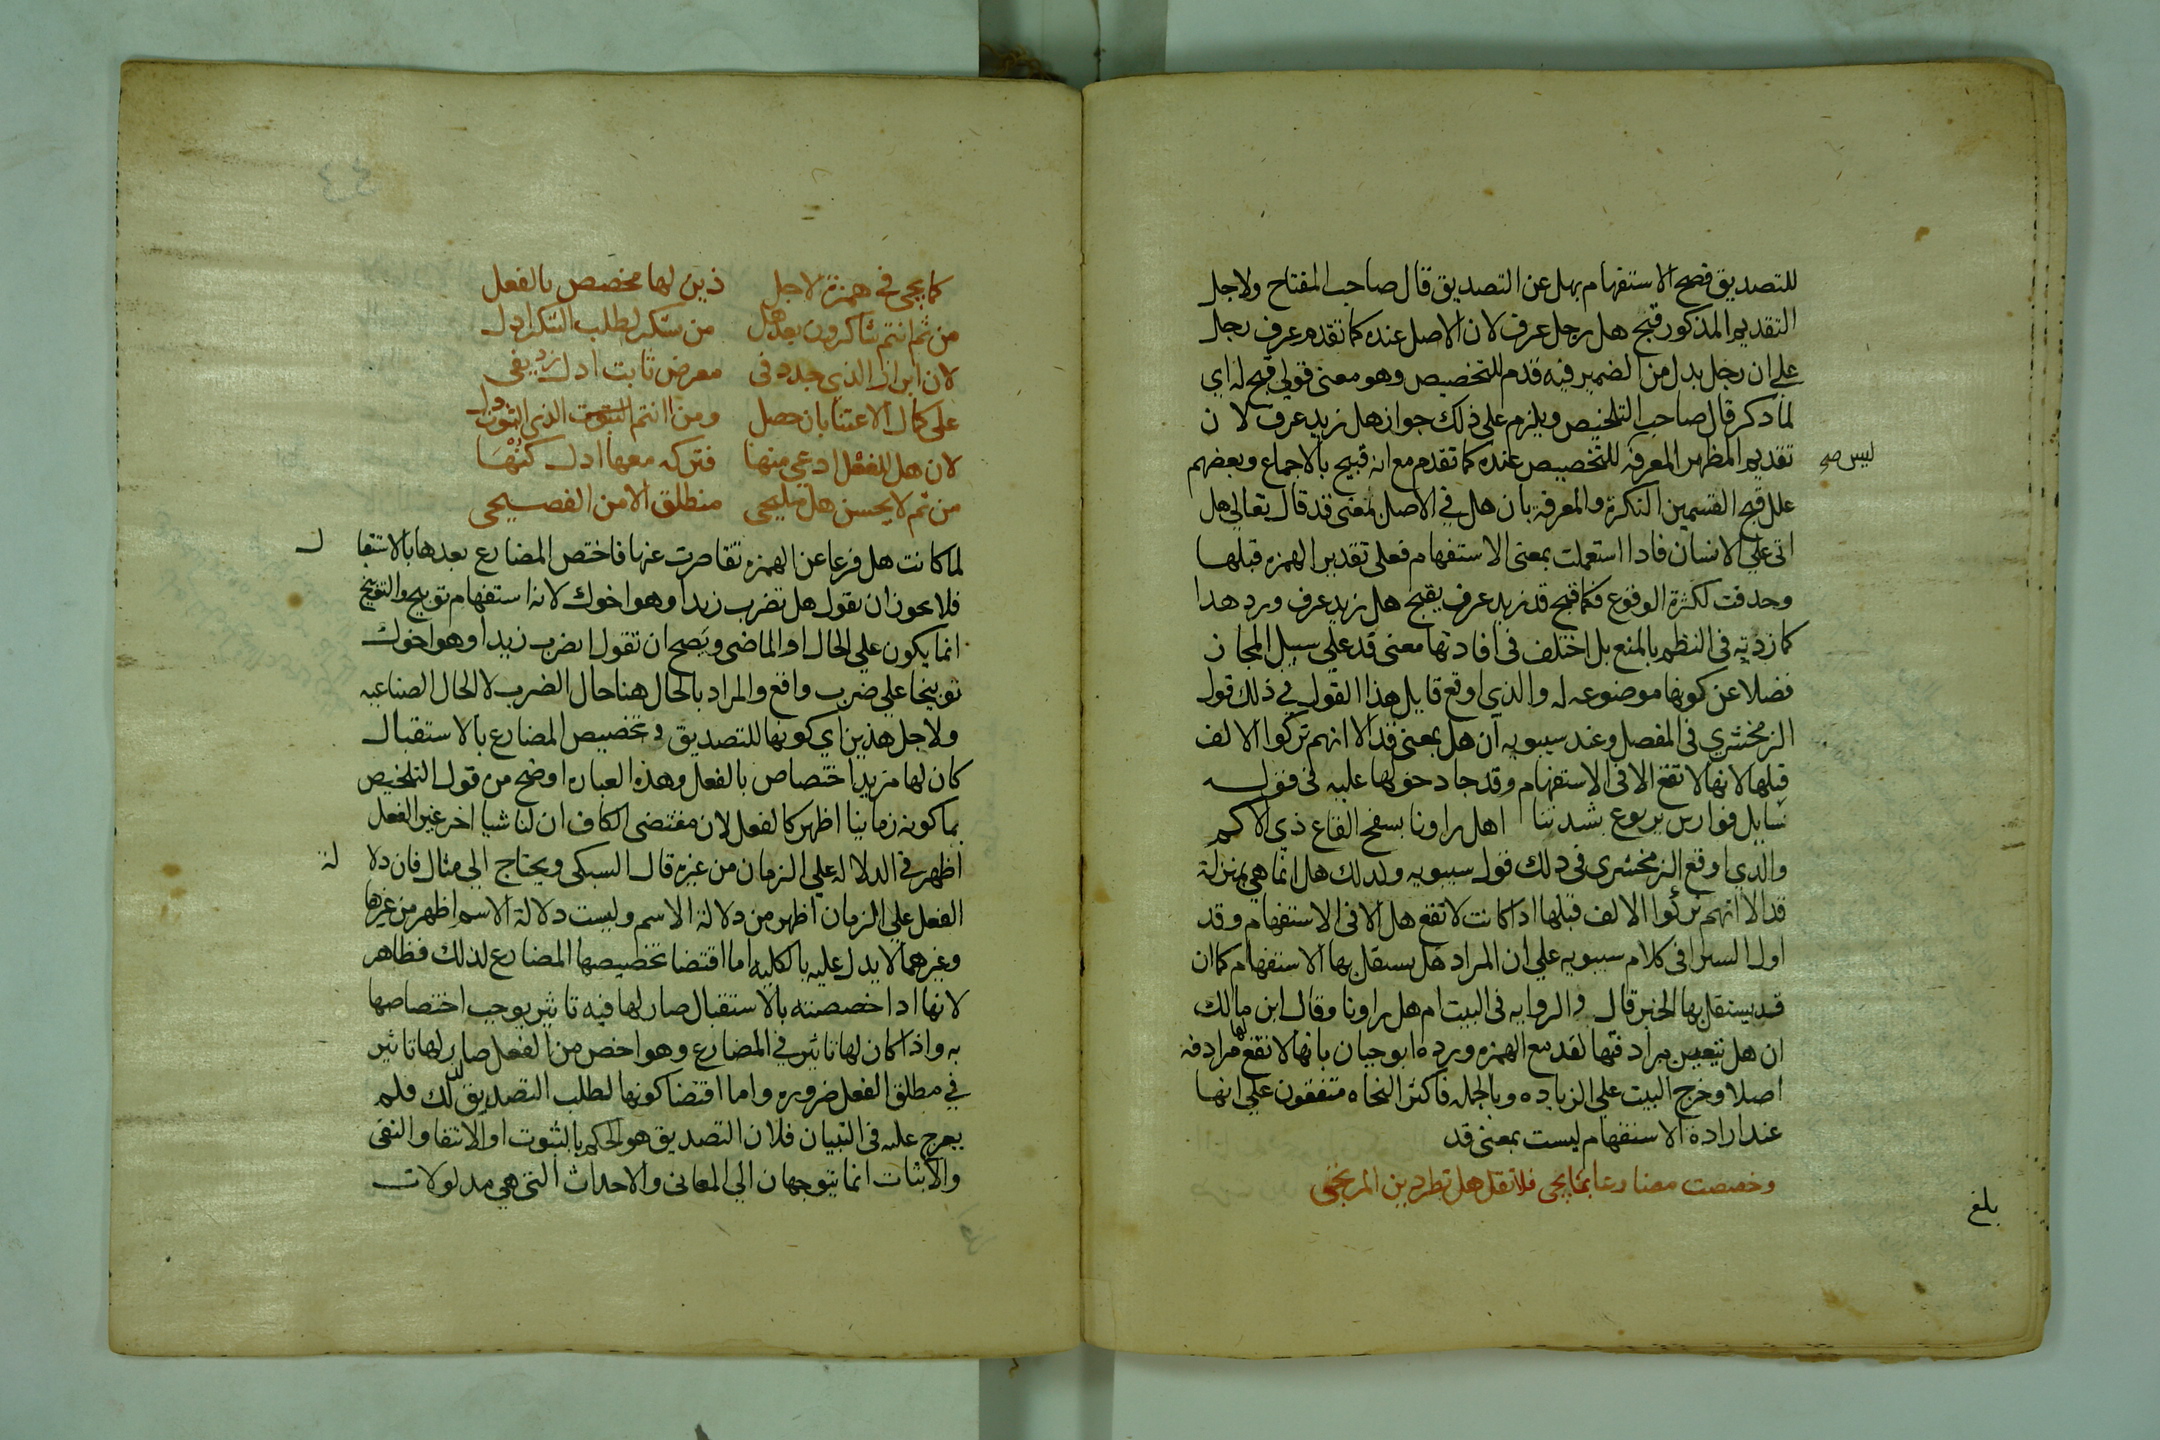 للتصديق فصح الاستفهام بهل عن التصديق قال صاحب المفتاح ولاجل
التقديم المذكور قبح هل رجل عرف لان الاصل عنده كما تقدم عرف رجل
علي ان رجل بدل من الضمير فيه قدم للتخصيص وهو معنى قولي قبح له اي
لما ذكر قال صاحب التلخيص ويلزم على ذلك جواز هل زيد عرف لان
تقديم المظهر المعرفة للتخصيص عنده كما تقدم مع انه قبيح بالاجماع وبعضهم
ليس صح
علل قبح القسمين النكرة والمعرفة بان هل في الاصل بمعنى قد قال تعالى هل
اتى علي الانسان فاذا استعملت بمعنى الاستفهام فعلى تقدير الهمزه قبلها
وحذفت لكثرة الوقوع فكما قبح قد زيد عرف يقبح هل زيد عرف ورد هدا
كما زدته في النظم بالمنع بل اختلف في افادتها معنى قد علي سبيل المجاز
فضلا عن كونها موضوعه له والذي اوقع قايل هذا القول في ذلك قول
الزمخشري في المفصل وعند سيبويه ان هل بمعنى قد الا انهم تركوا الالف
قبلها لانها لا تقع الا في الاستفهام وقد جا دخولها عليه في قوله
سايل فوارس يربوع بشدتنا اهل راونا بسفح القاع ذي الاكم
والذي اوقع الزمخشري في ذلك قول سيبويه ولذلك هل انما هي بمنزلة
قد الا انهم تركوا الالف قبلها اذا كانت لا تقع هل الا في الاستفهام وقد
اول السيرافي كلام سيبويه علي ان المراد هل يستقل بها الاستفهام كما ان
قد يستقل بها الخبر قال والروايه في البيت ام هل راونا وقال ابن مالك
ان هل تتعين مرادفتها لقد مع الهمزه ورده ابو حيان بانها لا تقع مرادفة لها
اصلا وخرج البيت علي الزياده وبالجمله فاكثر النحاه متفقون علي انها
عند ارادة الاستفهام ليست بمعنى قد
وخصصت مضارعا بما يجي فلا تقل هل تطردين المرتجى
بلغ
٤٤
كما يجي في همزة لاجل ذين لها مخصص بالفعل
من ثم انتم شاكرون بعد هل من شكر لطلب الشكر ادل
لان ابراز الذي جدد في معرض ثابت ادل
على كمال الاعتنا بان حصل ومن اانتم الذي الثبوت دل
لان هل للفعل ادعى منها فتركه معها ادل كنها
من ثم لا يحسن هل مليحي منطلق الا من الفصيحي
لما كانت هل فرعا عن الهمزه تقاصرت عنها فاختص المضارع بعدها بالاستقبا
ل
فلا يجوز ان تقول هل تضرب زيدا وهو اخوك لانه استفهام توبيخ والتوبيخ
انما يكون علي الحال او الماضي ويصح ان تقول اتضرب زيدا وهو اخوك
توبيخا علي ضرب واقع والمراد بالحال هنا حال الضرب لا الحال الصناعيه
ولاجل هذين اي كونها للتصديق وتخصيص المضارع بالاستقبال
كان لها مزيد اختصاص بالفعل وهذه العباره اوضح من قول التلخيص
بما كونه زمانيا اظهر كالفعل لان مقتضى الكاف ان لنا شيا اخر غير الفعل
اظهر في الدلاله علي الزمان من غيره قال السبكي ويحتاج الي مثال فان دلا
لة
الفعل علي الزمان اظهر من دلالة الاسم وليست دلالة الاسم اظهر من غيرها
وغيرهما لا يدل عليه بالكليه اما اقتضا تخصيصها المضارع لذلك فظاهر
لانها اذا خصصته بالاستقبال صار لها فيه تاثير يوجب اختصاصها
به واذا كان لها تاثير في المضارع وهو اخص من الفعل صار لها تاثير
في مطلق الفعل ضروره واما اقتضا كونها لطلب التصديق لذلك فلم
يعرج عليه في التبيان فلان التصديق هو الحكم بالثبوت او الانتفا والنفي
والاثبات انما يتوجهان الي المعاني والاحداث التي هي مدلولات